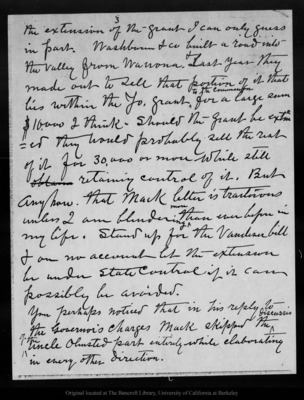 3
the extension of the grant I can only guess
in part. Washburn & co built a road into
the valley from Wawona. Last year they
made out to sell that portion of it that
to the commission
lies within the Yo. grant, for a large sum
$10000 I think. Should the grant be extend
=ed they would probably sell the rest
of it for 30,000 or more while still
retaining control of it. But
Anyhow. that Mack letter is traitorous
unless I am blundering more than ever before in
my life. Stand up for the Vandever bill
& on no account let the extension
be under State Control if it can
possibly be avoided.
You perhaps noticed that in his reply to
the Governor's charges Mack skipped the
Uncle Olmsted part entirely while elaborating
in every other direction.
Original located at The Bancroft Library, University of California at Berkeley